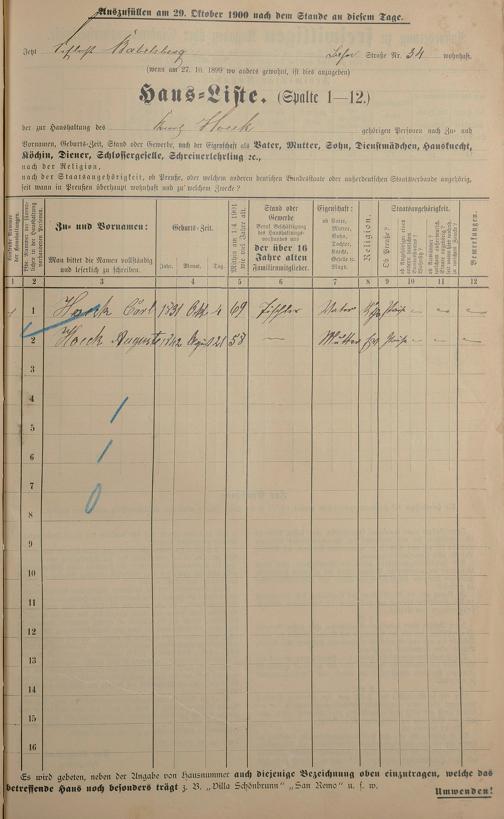 Auszufüllen am 29. Oktober 1900 nach dem Stande an diesem Tage.
Jetzt Schloß Babelsberg Straße Nr. 34 wohnhaft.
(wenn am 27. 10. 1899 wo anders gewohnt, ist dies anzugeben)
Haus-Liste. (Spalte 1—12.)
der zur Haushaltung des Hoeck gehörigen Personen nach Zu- und
Vornamen, Geburts-Zeit, Stand oder Gewerbe, nach der Eigenschaft als Vater, Mutter, Sohn, Dienstmädchen, Hausknecht,
Köchin, Diener, Schlossergeselle, Schreinerlehrling ec.,
nach der Religion,
nach der Staatsangehörigkeit, ob Preuße, oder welchem anderen deutschen Bundesstaate oder außerdeutschen Staatsverbande angehörig,
seit wann in Preußen überhaupt wohnhaft und zu welchem Zwecke?
Zu- und Vornamen:
Man bittet die Namen vollständig
und leserlich zu schreiben.
Geburts-Zeit.
Jahr. Monat. Tag.
Mithin am 1./4. 1901
wie viel Jahre alt.
Stand oder
Gewerbe
Beruf, Beschäftigung
des Haushaltungs-
vorstandes und
der über 16
Jahre alten
Familienmitglieder.
Eigenschaft:
ob Vater,
Mutter,
Sohn,
Tochter,
Knecht,
Geselle,
Magd.
Religion.
Staatsangehörigkeit.
Ob Preuße?
Bemerkungen.
1 2 3 4 5 6 7 8 9 10 11 12
1 Carl 1831 Okt. 4 69 Tischler Vater
2 Hoeck Auguste 1842 August 21 58 — Mutter Ev
3
4
5
6
7
8
9
10
11
12
13
14
15
16
Es wird gebeten, neben der Angabe von Hausnummer auch diejenige Bezeichnung oben einzutragen, welche das
betreffende Haus noch besonders trägt z. B. „Villa Schönbrunn" „San Remo" u. s. w.
Umwenden!